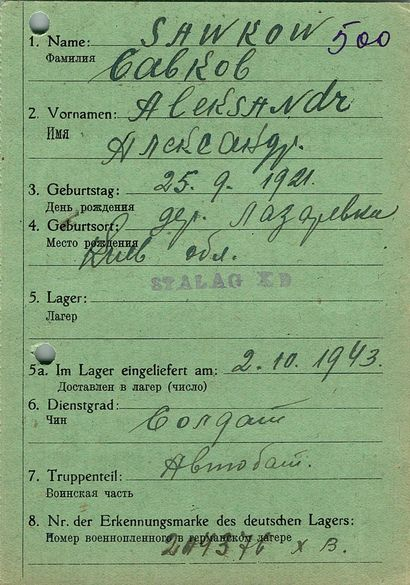 1. Name: SAWKOW 500
Фамилия
Савков
2. Vornamen: Aleksandr
Имя
Александр.
3. Geburtstag: 25. 9. 1921.
День рождения
4. Geburtsort: дер. Лазаревка
Место рождения
Киев обл.
STALAG X D
5. Lager:
Лагер
5a. Im Lager eingeliefert am: 2. 10. 1943.
Доставлен в лагер (число)
6. Dienstgrad: Солдат
Чин
Автобат.
7. Truppenteil:
Воинская часть
8. Nr. der Erkennungsmarke des deutschen Lagers:
Номер военнопленного в германском лагере
209376 X B.